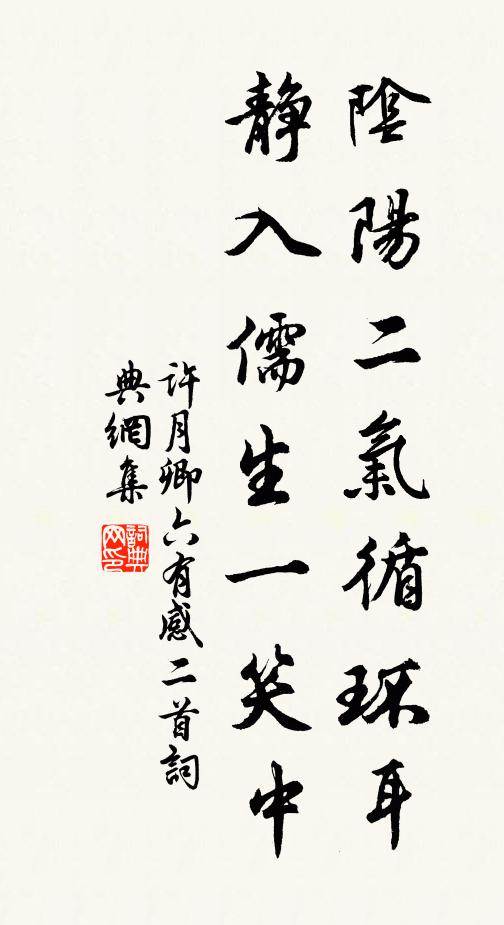 陰陽二氣循环耳
靜入儒生一笑中
許月卿六有感二首詞
典網集
詞典网印